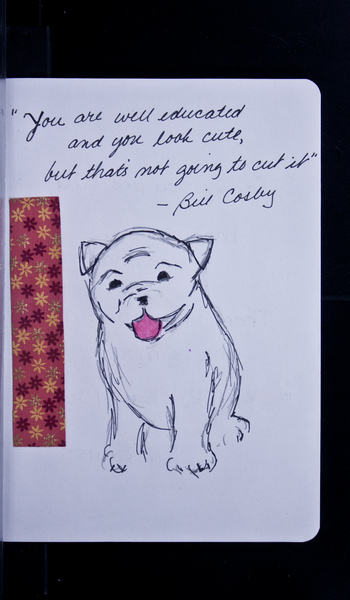 "You are well educated
and you look cute,
but that's not going to cut it"
- Bill Cosby